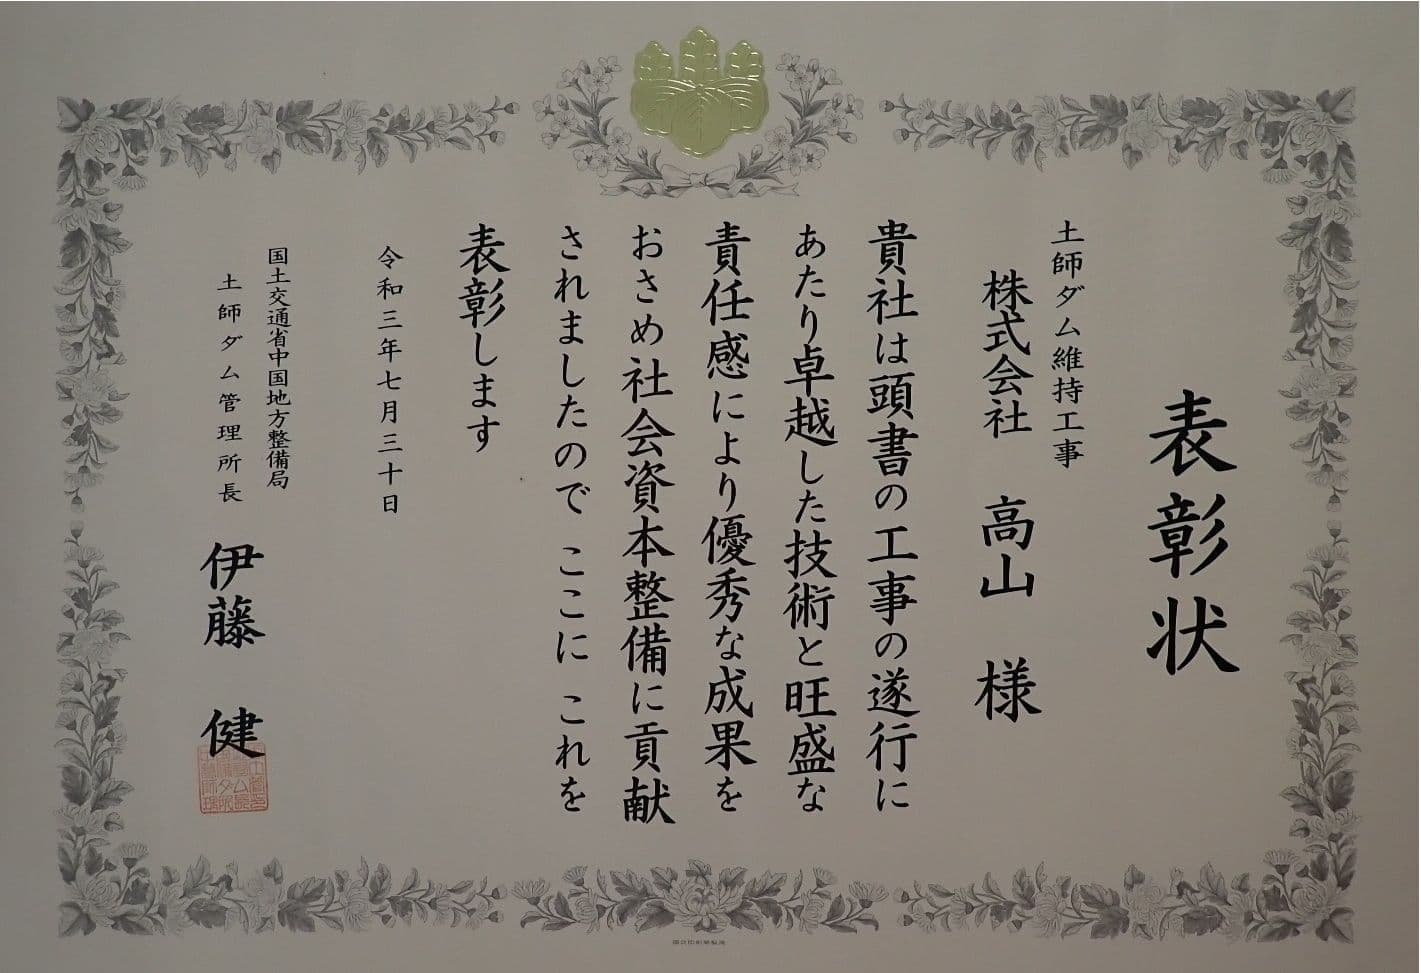 表彰状
土師ダム維持工事
株式会社 高山 様
貴社は頭書の工事の遂行に
あたり卓越した技術と旺盛な
責任感により優秀な成果を
おさめ社会資本整備に貢献
されましたので ここに これを
表彰します
令和三年七月三十日
国土交通省中国地方整備局
土師ダム管理所長
伊藤 健